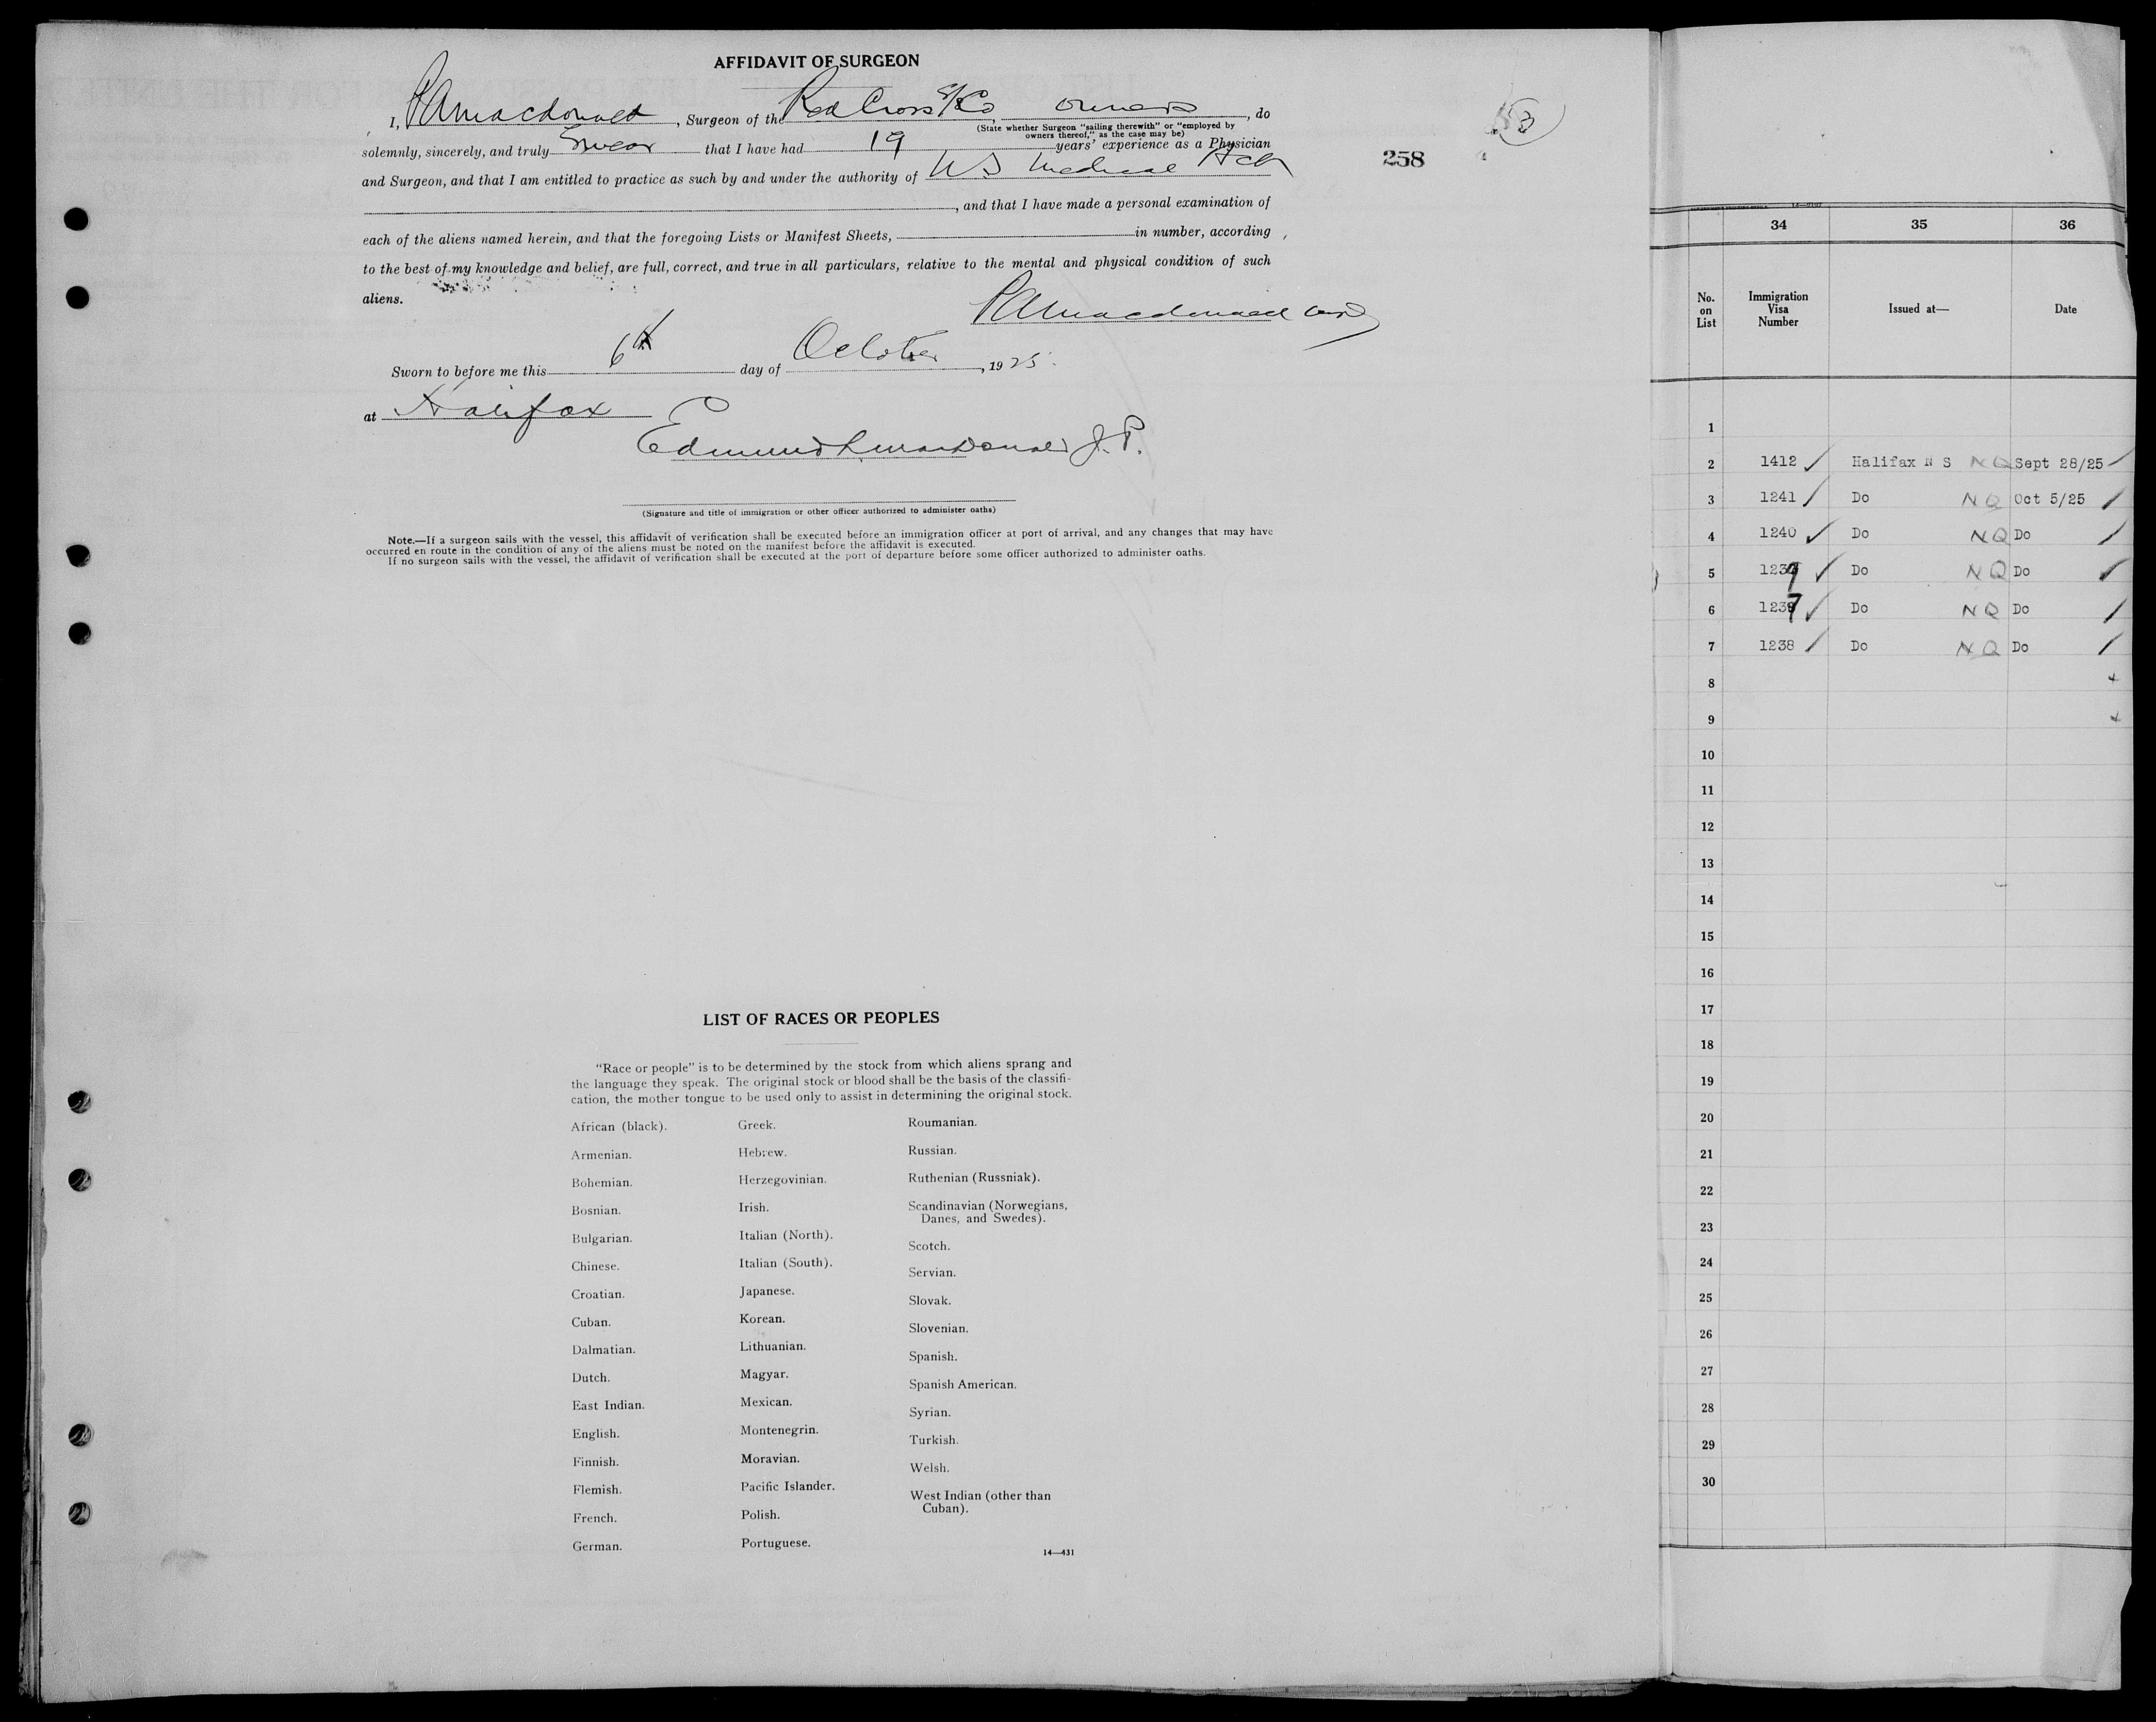 AFFIDAVIT OF SURGEON
I, P A Macdonald, Surgeon of the Red Cross S/S Co, owners, do
(State whether Surgeon "sailing therewith" or "employed by
owners thereof," as the case may be)
solemnly, sincerely, and truly Swear that I have had 19 years' experience as a Physician
and Surgeon, and that I am entitled to practice as such by and under the authority of NS Medical Act
, and that I have made a personal examination of
each of the aliens named herein, and that the foregoing Lists or Manifest Sheets, in number, according
to the best of my knowledge and belief, are full, correct, and true in all particulars, relative to the mental and physical condition of such
aliens.
P A Macdonald
Sworn to before me this 6th day of October, 1925.
at Halifax
Edmund L. MacDonald J.P.
(Signature and title of immigration or other officer authorized to administer oaths)
Note.—If a surgeon sails with the vessel, this affidavit of verification shall be executed before an immigration officer at port of arrival, and any changes that may have
occurred en route in the condition of any of the aliens must be noted on the manifest before the affidavit is executed.
If no surgeon sails with the vessel, the affidavit of verification shall be executed at the port of departure before some officer authorized to administer oaths.
258
LIST OF RACES OR PEOPLES
"Race or people" is to be determined by the stock from which aliens sprang and
the language they speak. The original stock or blood shall be the basis of the classifi-
cation, the mother tongue to be used only to assist in determining the original stock.
African (black).
Armenian.
Bohemian.
Bosnian.
Bulgarian.
Chinese.
Croatian.
Cuban.
Dalmatian.
Dutch.
East Indian.
English.
Finnish.
Flemish.
French.
German.
Greek.
Hebrew.
Herzegovinian.
Irish.
Italian (North).
Italian (South).
Japanese.
Korean.
Lithuanian.
Magyar.
Mexican.
Montenegrin.
Moravian.
Pacific Islander.
Polish.
Portuguese.
Roumanian.
Russian.
Ruthenian (Russniak).
Scandinavian (Norwegians,
Danes, and Swedes).
Scotch.
Servian.
Slovak.
Slovenian.
Spanish.
Spanish American.
Syrian.
Turkish.
Welsh.
West Indian (other than
Cuban).
14—431
34 35 36
No. on List Immigration Visa Number Issued at— Date
1
2 1412 Halifax N S NQ Sept 28/25
3 1241 Do NQ Oct 5/25
4 1240 Do NQ Do
5 1239 Do NQ Do
6 1237 Do NQ Do
7 1238 Do NQ Do
8
9
10
11
12
13
14
15
16
17
18
19
20
21
22
23
24
25
26
27
28
29
30